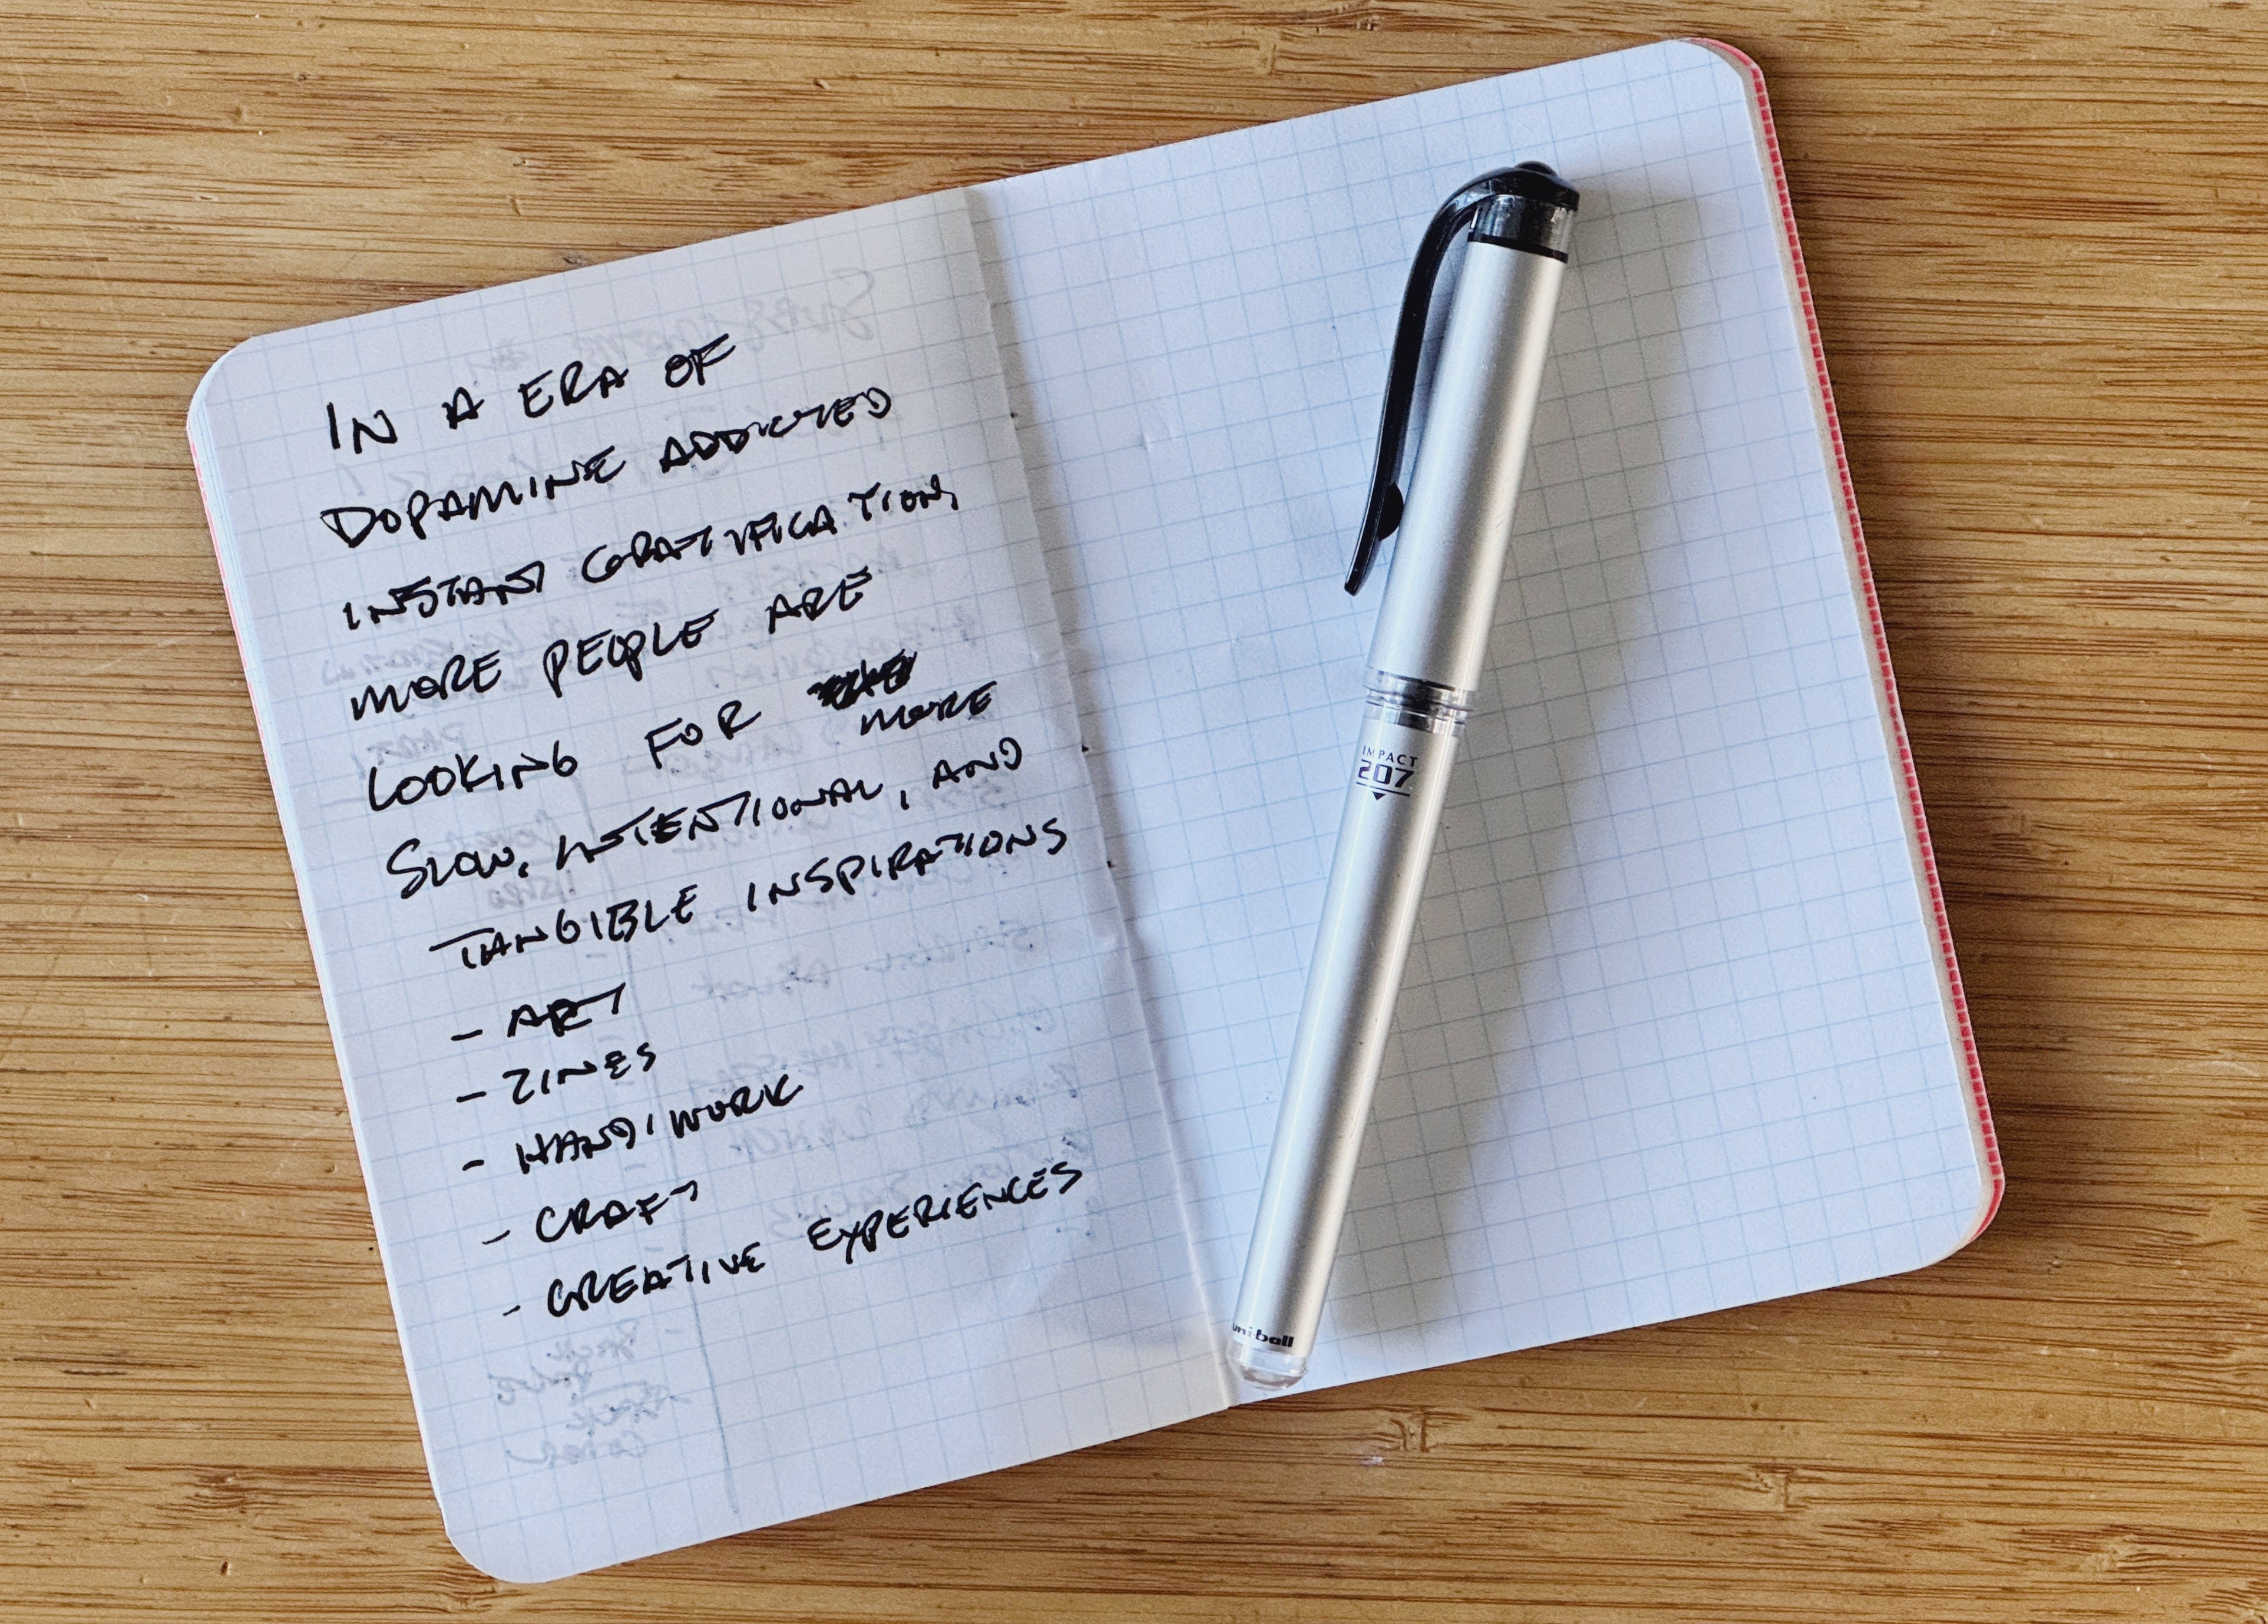 IN A ERA OF
DOPAMINE ADDICTED
INSTANT GRATIFICATION,
MORE PEOPLE ARE
LOOKING FOR
MORE
SLOW, INTENTIONAL, AND
TANGIBLE INSPIRATIONS
- ART
- ZINES
- HANDIWORK
- CRAFT
- CREATIVE EXPERIENCES
IMPACT
207
uni-ball